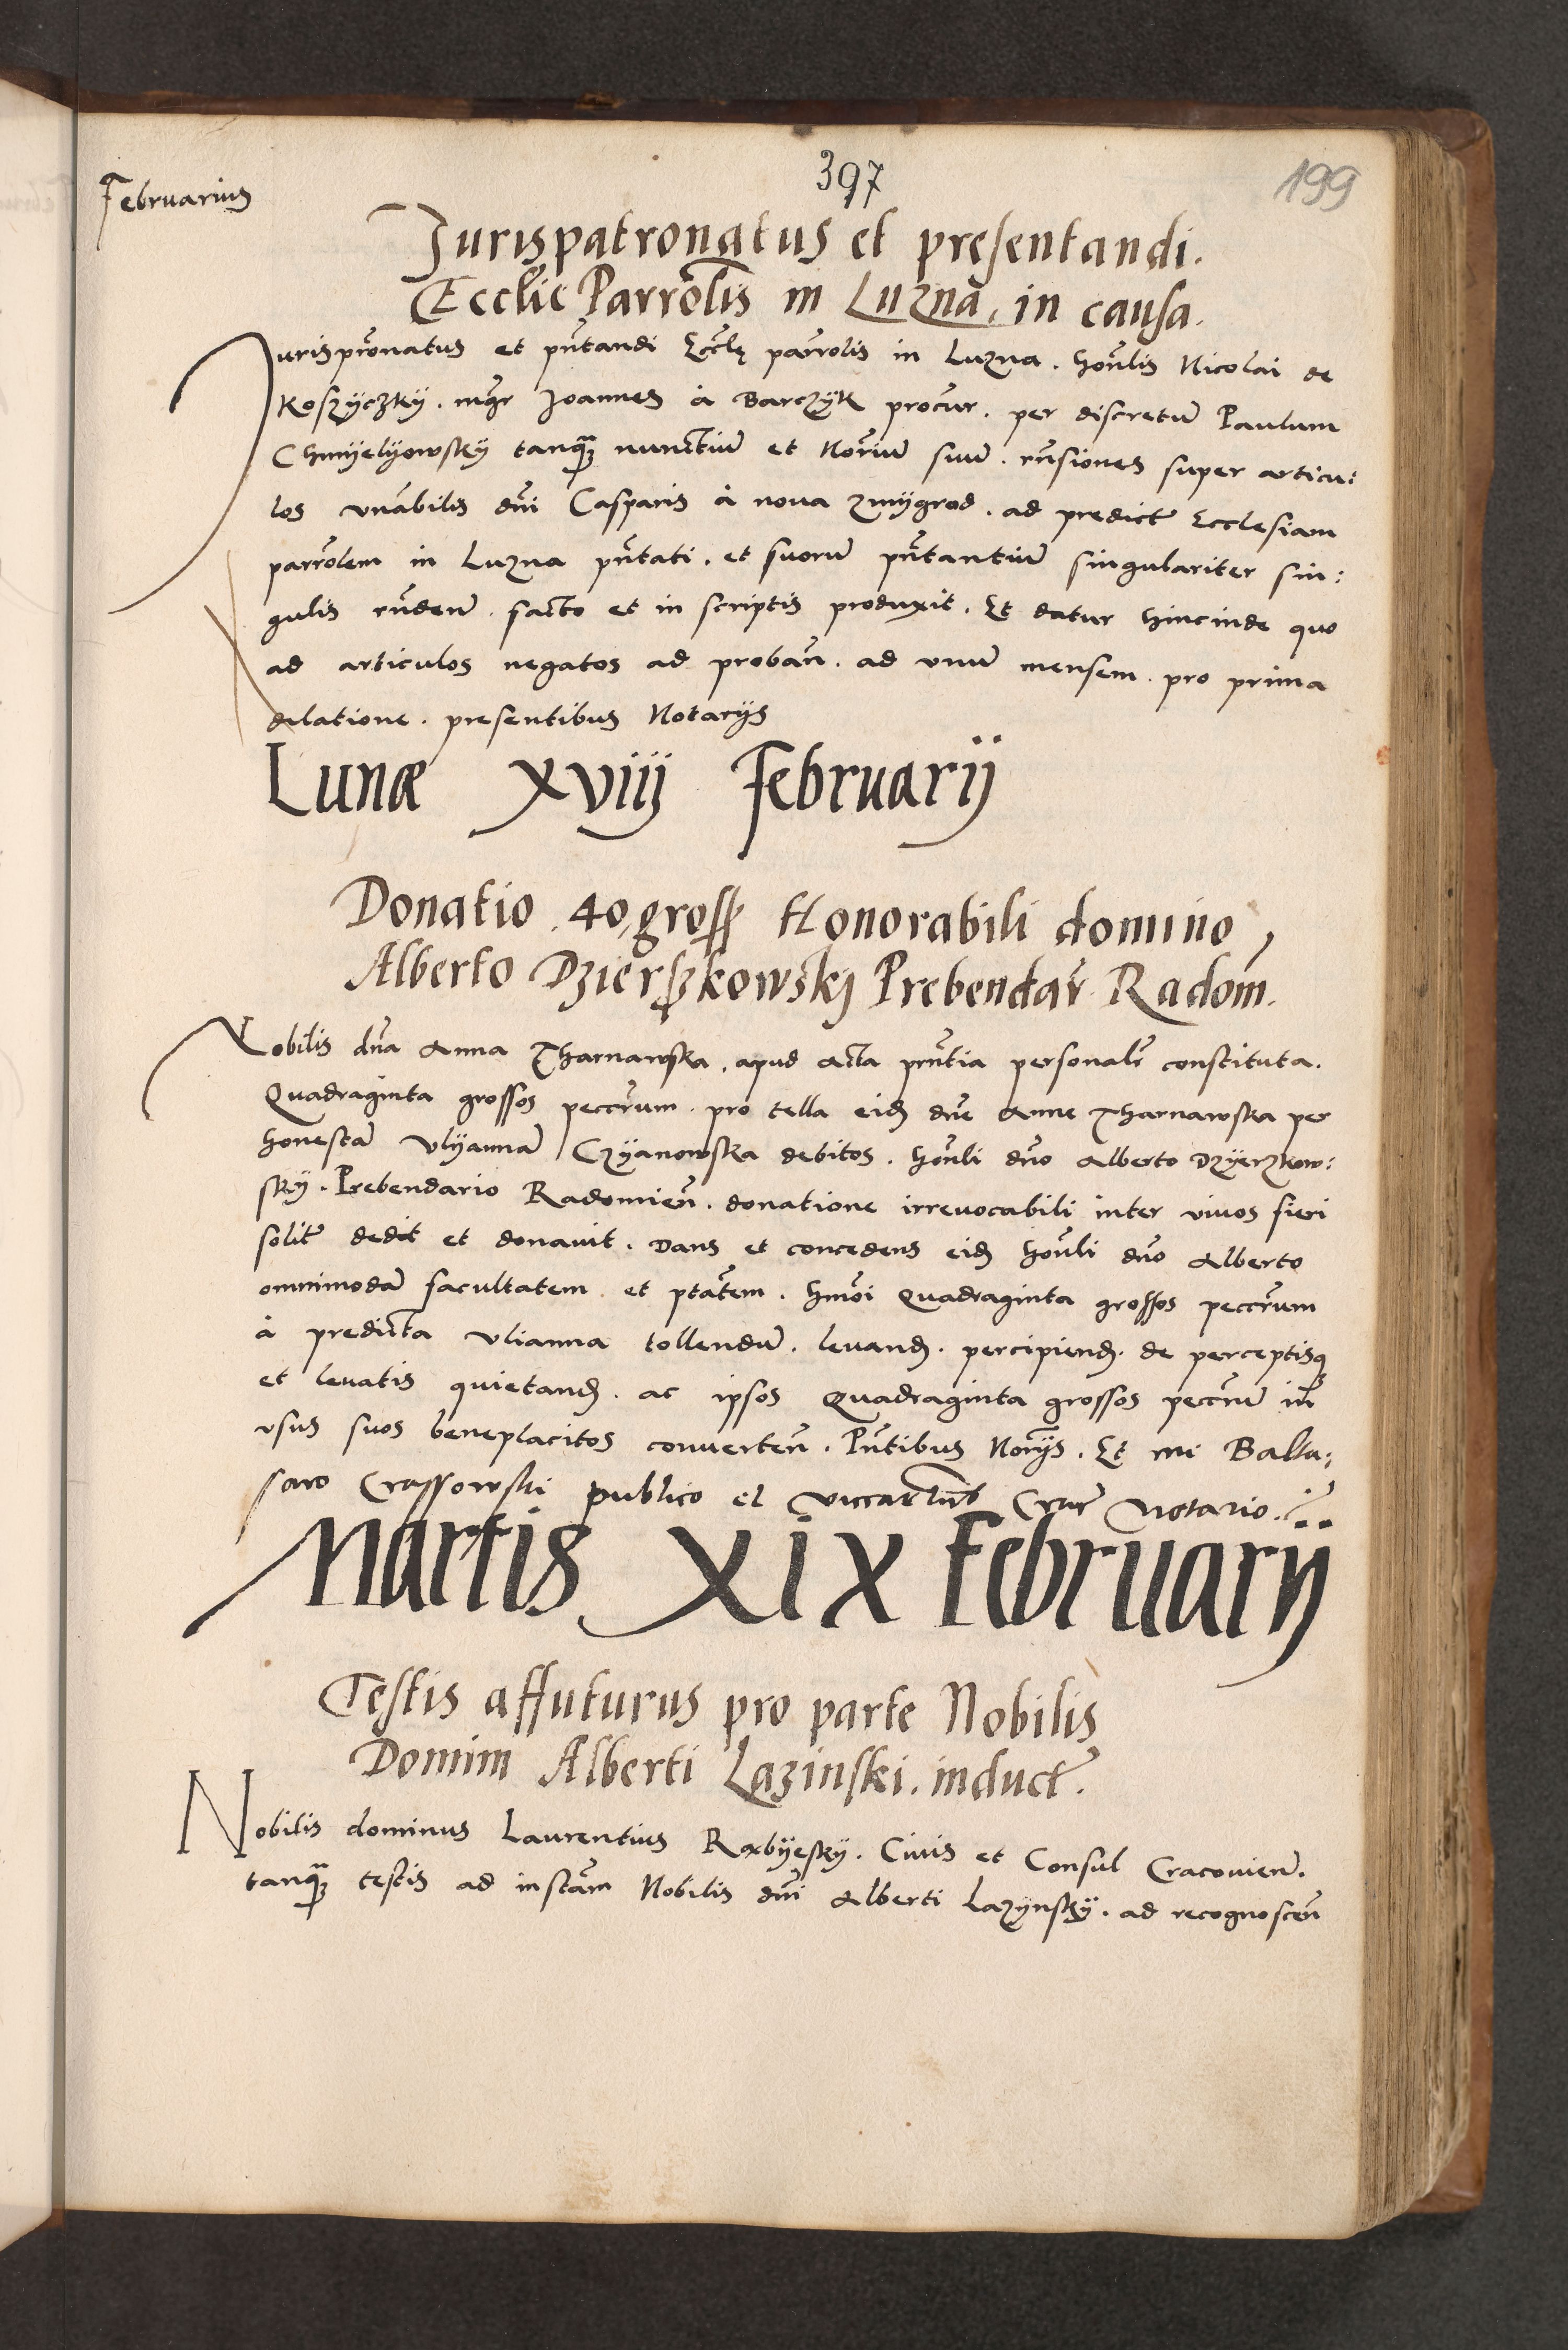 397
199
Februarius
Jurispatronatus et presentandi.
Ecclie Parrolis in Luzna, in causa.
Jurispronatus et pntandi Eccle parrolis in Luzna. honlis Nicolai de
Koszyczky. mgr Joannes à Barczyk procur. per discretu Paulum
Chmyelyowsky tanq nunctiu et Noriu suu. rnsiones super articu:
los vnabilis dni Casparis à nova zmygrod. ad predict Ecclesiam
parrolem in Luzna pntati. et suoru pntantiu singulariter sin:
gulis rnden. facto et in scriptis produxit. Et datur hincinde quo
ad articulos negatos ad proban. ad vnu mensem. pro prima
dilatione. presentibus Notarijs
Lunæ xviij Februarij
Donatio 40 gross Honorabili domino
Alberto Dzierszkowskj Prebendar Radom.
Nobilis dna Anna Tharnawska, apud Acta pntia personalr constituta.
Quadraginta grossos peccrum. pro tella eid dne Anne Tharnawska per
honesta Vlyanna Czyanowska debitos. honli dno Alberto Dzyerzkow:
sky. Prebendario Radomien. donatione irreuocabili inter viuos fieri
solit dedit et donauit. Dans et concedens eid honli dno Alberto
omnimoda facultatem et ptatem. hmoi Quadraginta grossos peccrum
à predicta Vlianna tollendu. levand. percipiend. de perceptisq
et levatis quietand. ac ipsos Quadraginta grossos peccru in
vsus suos beneplacitos converten. Pntibus Norijs. Et me Balta:
saro Crassowski publico et Notario.
Martis xix Februarij
Testis affuturus pro parte Nobilis
Domini Alberti Lazinski. induct.
Nobilis dominus Laurentius Roxbyesky. Civis et Consul Cracovien.
tanq testis ad instam Nobilis dni Alberti Lazynsky. ad recognoscen